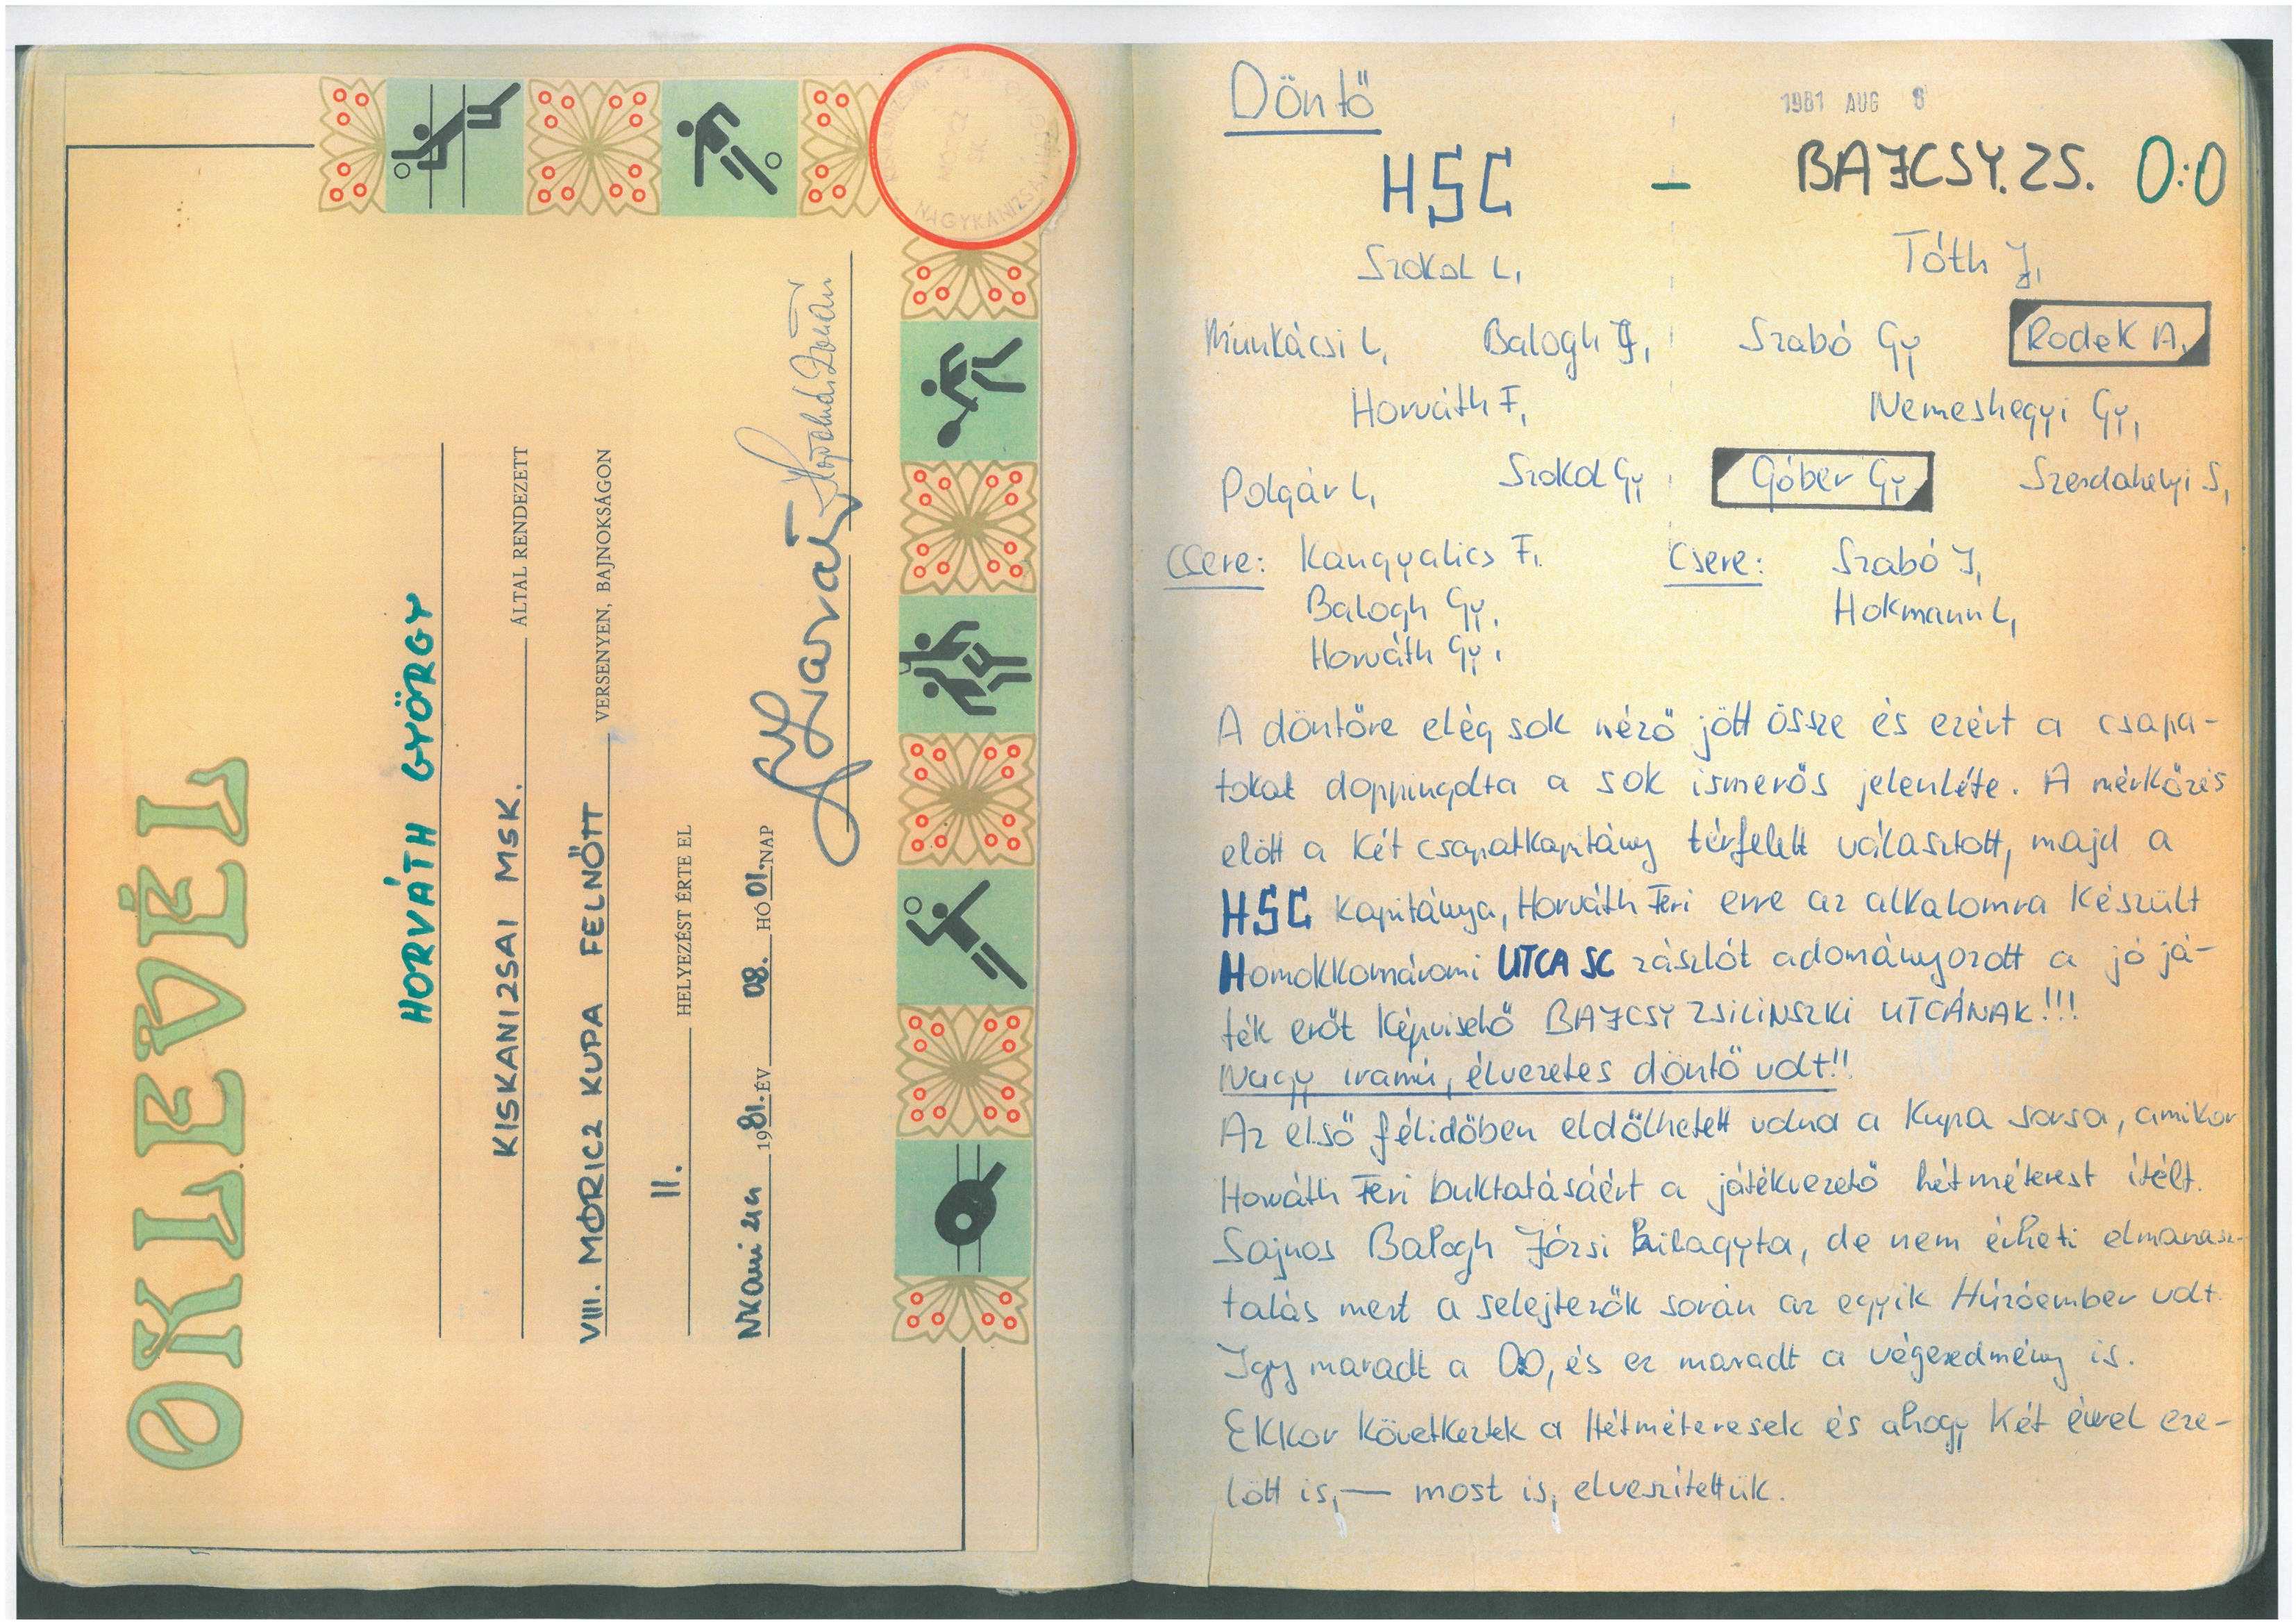 OKLEVÉL
HORVÁTH GYÖRGY
KISKANIZSAI MSK. ÁLTAL RENDEZETT
VIII. MÓRICZ KUPA FELNŐTT VERSENYEN, BAJNOKSÁGON
II. HELYEZÉST ÉRTE EL
1981. ÉV 08. HÓ 01. NAP
NAGYKANIZSA
Döntő
1981 AUG 8
HSC – BAJCSY. ZS. 0:0
Szokol L, Tóth J,
Munkácsi L, Balogh J, Szabó Gy Rodek A,
Horváth F, Nemeshegyi Gy,
Polgár L, Szokol Gy Góber Gy Szerdahelyi S,
Csere: Kangyalics F, Csere: Szabó J,
Balogh Gy, Hokmann L,
Horváth Gy,
A döntőre elég sok néző jött össze és ezért a csapa-
tokat doppingolta a sok ismerős jelenléte. A mérkőzés
előtt a két csapatkapitány térfelet választott, majd a
HSC kapitánya, Horváth Feri erre az alkalomra készült
Homokkomáromi UTCA SC zászlót adományozott a jó já-
ték erőt képviselő BAJCSY ZSILINSZKI UTCÁNAK!!!
Nagy iramú, élvezetes döntő volt!!
Az első félidőben eldőlhetett volna a kupa sorsa, amikor
Horváth Feri buktatásáért a játékvezető hétméterest ítélt.
Sajnos Balogh Józsi kihagyta, de nem érheti elmarasz-
talás mert a selejtezők során az egyik Húzóember volt.
Igy maradt a 0:0, és ez maradt a végeredmény is.
Ekkor következtek a Hétméteresek és ahogy két évvel eze-
lött is, — most is, elveszítettük.